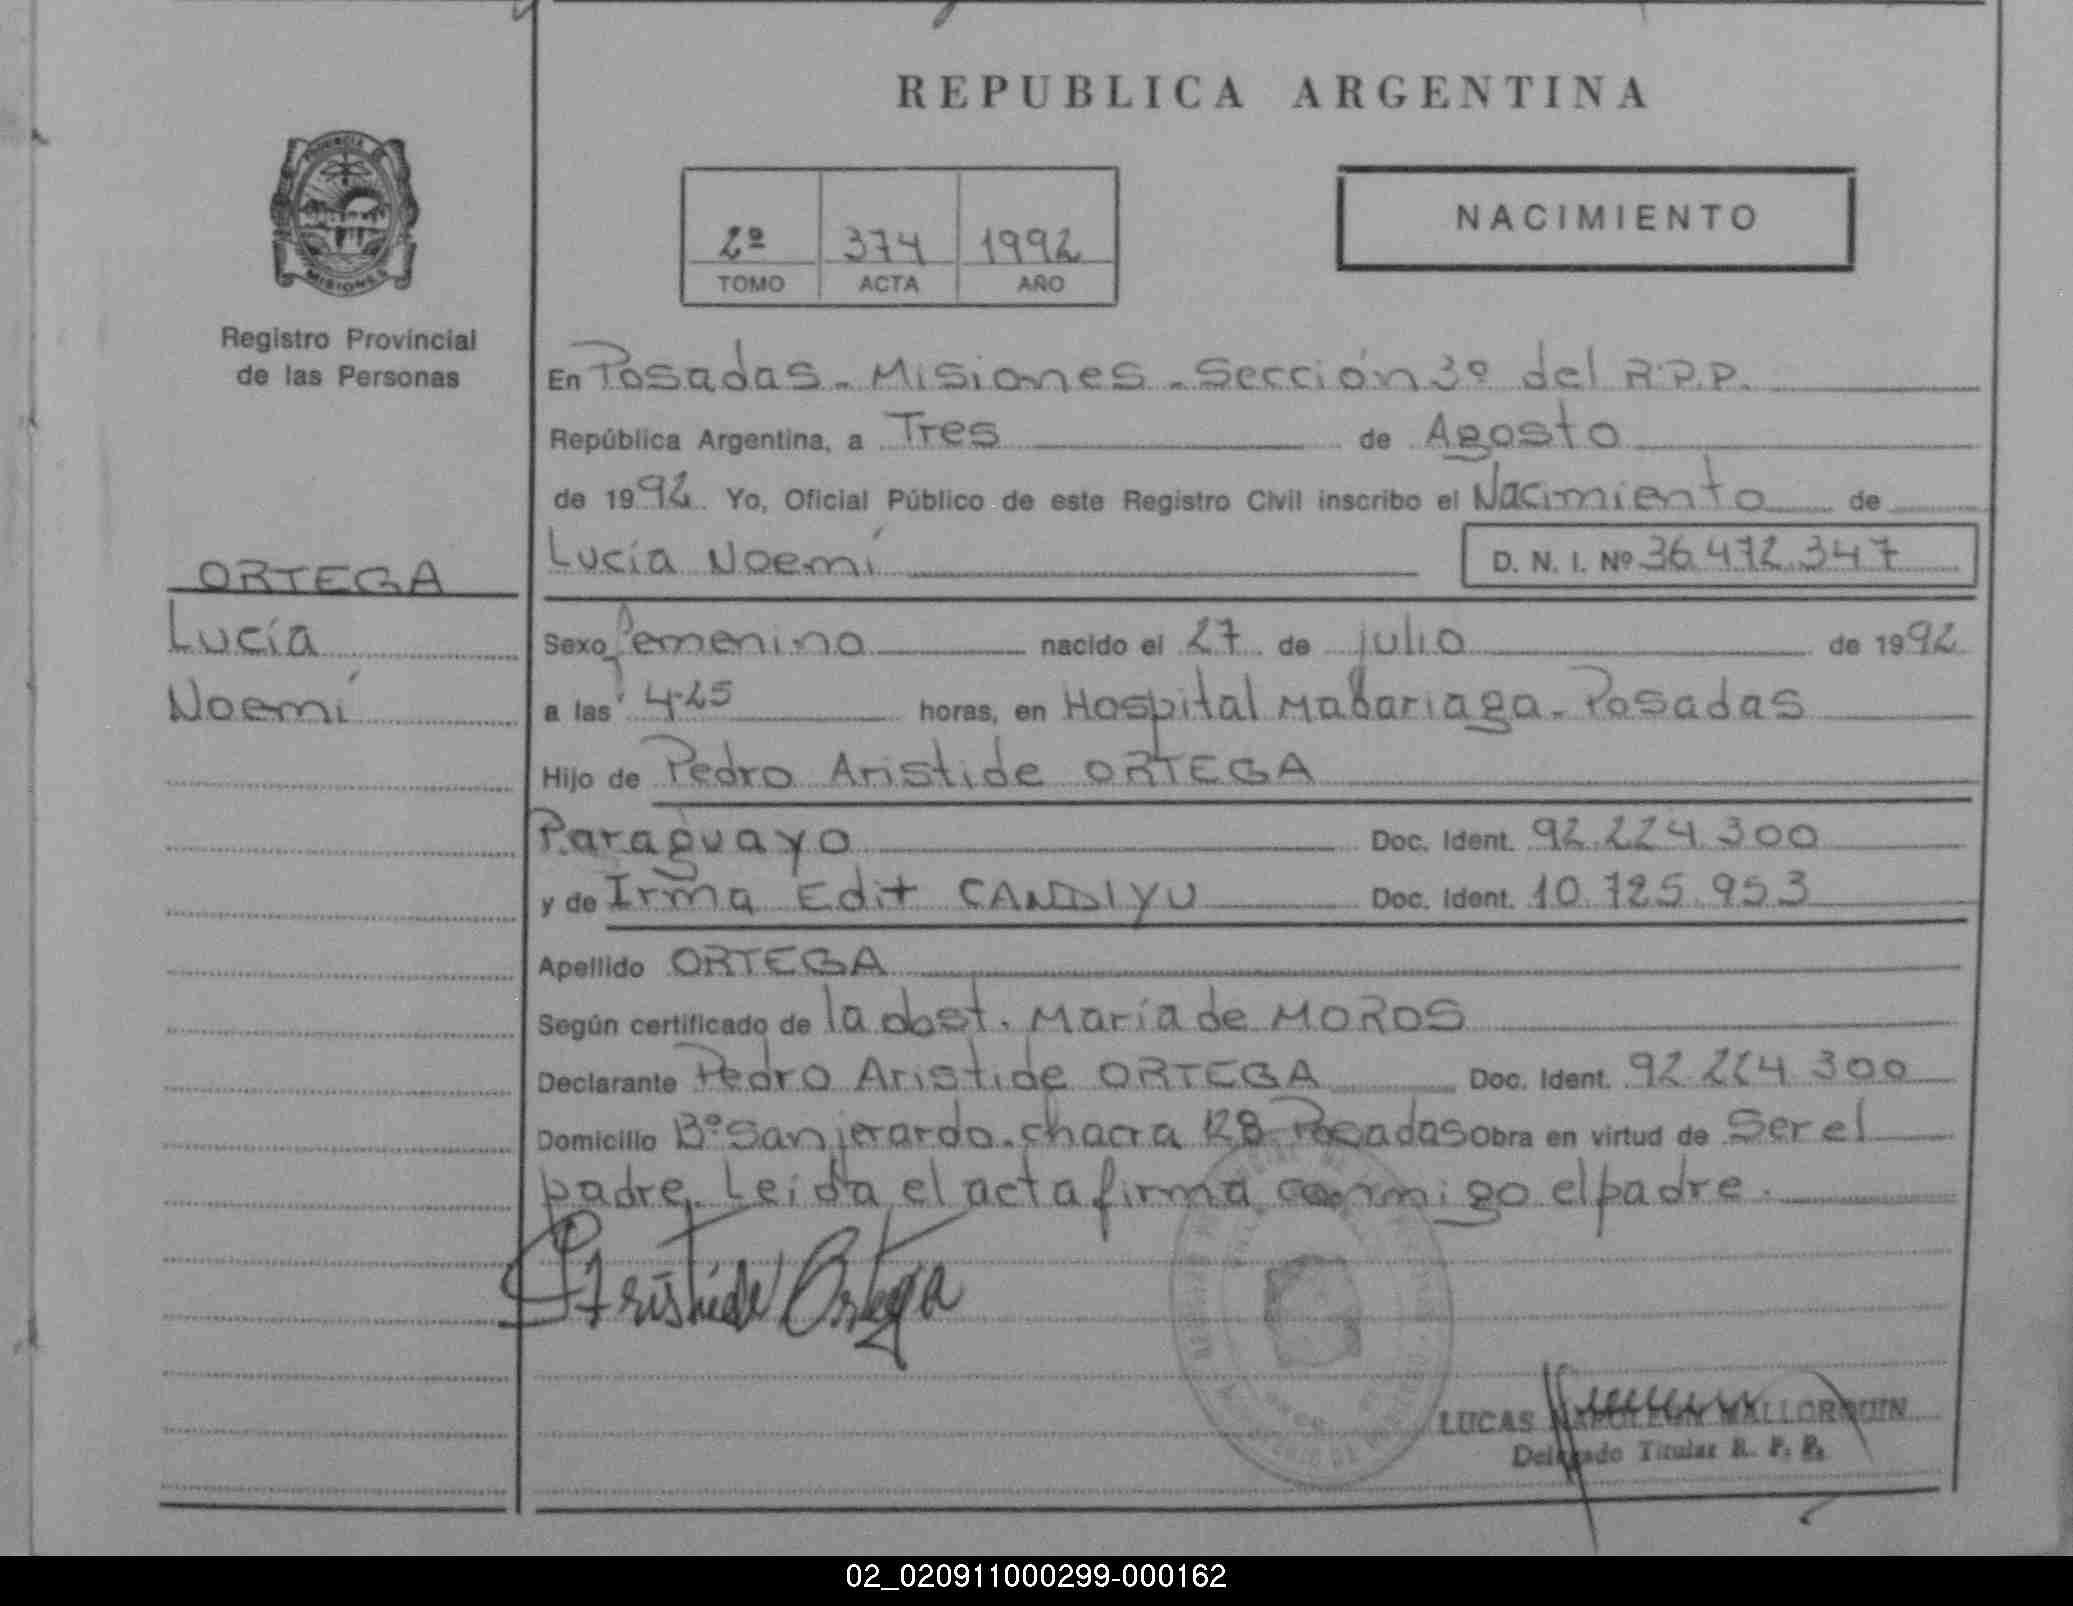 REPUBLICA ARGENTINA
PROVINCIA DE
MISIONES
Registro Provincial
de las Personas
2º 374 1992
TOMO ACTA AÑO
NACIMIENTO
En Posadas - Misiones - Sección 3º del R.P.P.
República Argentina, a Tres de Agosto
de 1992 Yo, Oficial Público de este Registro Civil inscribo el Nacimiento de
Lucía Noemí D. N. I. Nº 36.472.347
ORTEGA
Lucía
Noemí
Sexo femenino nacido el 27 de julio de 1992
a las 4.25 horas, en Hospital Madariaga - Posadas
Hijo de Pedro Aristide ORTEGA
Paraguayo Doc. Ident. 92.224.300
y de Irma Edit CANDIYU Doc. Ident. 10.725.953
Apellido ORTEGA
Según certificado de la obst. María de MOROS
Declarante Pedro Aristide ORTEGA Doc. Ident. 92.224.300
Domicilio Bº San jerardo - chacra 128 Posadas Obra en virtud de Ser el
padre. Leida el acta firma conmigo el padre.
Aristide Ortega
LUCAS NAPOLEON MALLORQUIN
Delegado Titular R. P. P.
02_020911000299-000162